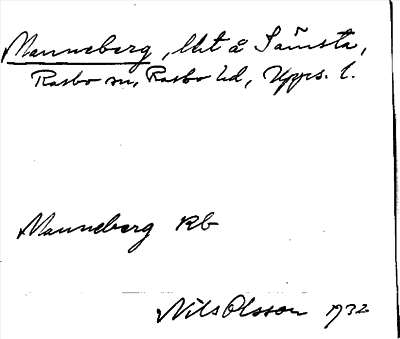 Manneberg, lht å Sämsta,
Rasbo sn, Rasbo hd, Upps. l.
Manneberg Rb
Nils Olsson 1932